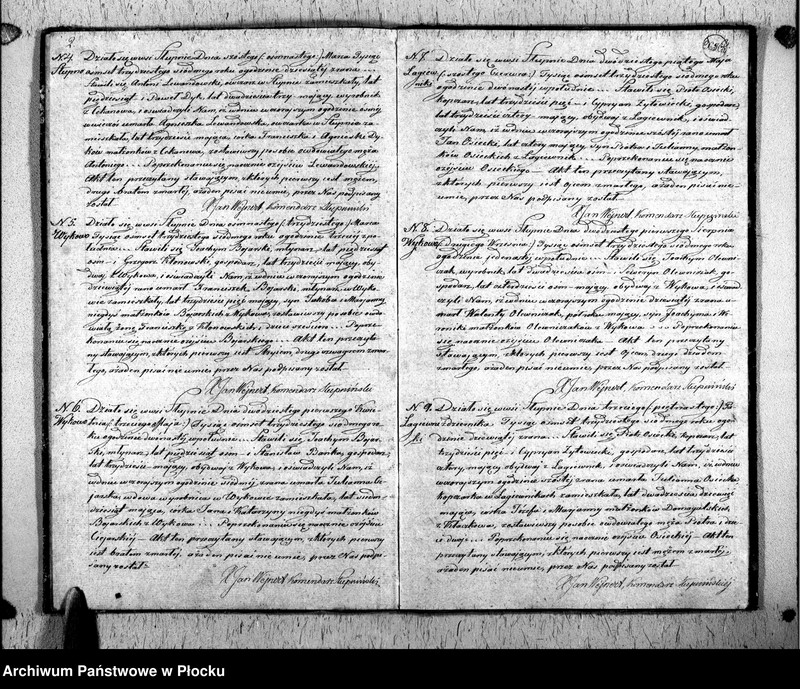 2
N 4. Działo się we wsi Słupnie Dnia szóstego (: osmnastego :) Marca Tysiąc
Słupno ośmset trzydziestego siódmego roku o godzinie dziewiątej zrana
Stawili się Antoni Lewandowski, owczarz w Słupnie zamieszkały, lat
pięćdziesiąt i Paweł Dyk, lat dwadzieścia trzy mający, wyrobnik
z Cekanowa, i oświadczyli Nam, iż w dniu wczorajszym o godzinie ósmej
wieczór umarła Agnieszka Lewandowska, owczarka w Słupnie za-
mieszkała, lat trzydzieści mająca, córka Franciszka i Agnieszki Dy-
ków małżonków z Cekanowa, zostawiwszy po sobie owdowiałego męża
Antoniego. Po przekonaniu się naocznie o zejściu Lewandowskiej
Akt ten przeczytany stawającym, z których pierwszy jest mężem,
drugi bratem zmarłej, a żaden pisać nie umie, przez Nas podpisany
został.
X Jan Wejnert, Komendarz Słupiński
N 5. Działo się we wsi Słupnie Dnia osmnastego (: trzydziestego :) Marca
Wykowo Tysiąc ośmset trzydziestego siódmego roku o godzinie trzeciej po-
południu. Stawili się Joachym Bojarski, młynarz, lat pięćdziesiąt
ośm i Grzegorz Kłonowski, gospodarz, lat trzydzieści mający, oby-
dwaj z Wykowa, i oświadczyli Nam, iż w dniu wczorajszym o godzinie
dziewiątej rano umarł Franciszek Bojarski, młynarz, w Wyko-
wie zamieszkały, lat trzydzieści pięć mający, syn Jakóba i Maryanny
niegdyś małżonków Bojarskich z Wykowa; zostawiwszy po sobie owdo-
wiałą żonę Franciszkę z Kłonowskich, i dwoje dzieci. Po prze-
konaniu się naocznie o zejściu Bojarskiego. Akt ten przeczyta-
ny stawającym, z których pierwszy jest stryjem, drugi szwagrem zmar-
łego, a żaden pisać nie umie, przez Nas podpisany został
X Jan Wejnert, Komendarz Słupiński
N 6. Działo się we wsi Słupnie Dnia dwudziestego pierwszego Kwie-
Wykowo tnia (: trzeciego Maja :) Tysiąc ośmset trzydziestego siódmego ro-
ku o godzinie dwunastej w południe. Stawili się Joachym Bojar-
ski, młynarz, lat pięćdziesiąt ośm i Stanisław Bońka, gospodarz,
lat trzydzieści mający, obydwaj z Wykowa, i oświadczyli Nam, iż
w dniu wczorajszym o godzinie siódmej zrana umarła Julianna
wdowa wyrobnica w Wykowie zamieszkała, lat
mająca, córka Jana i Katarzyny niegdyś małżonków
Bojarskich z Wykowa. Po przekonaniu się naocznie o zejściu
Akt ten przeczytany stawającym, z których pierwszy
jest bratem zmarłej, a żaden pisać nie umie, przez Nas podpi-
sany został.
X Jan Wejnert Komendarz Słupiński
N. 7. Działo się we wsi Słupnie Dnia dwudziestego piątego Maja
Łagiew- (: szóstego Czerwca :) Tysiąc ośmset trzydziestego siódmego roku
niki o godzinie dwunastej w południe. Stawili się Piotr Osiecki,
kopczarz, lat trzydzieści pięć i Cypryan Żytowiecki, gospodarz,
lat trzydzieści cztery mający, obydwaj z Łagiewnik, i oświad-
czyli Nam, iż w dniu wczorajszym o godzinie szóstej rano umarł
Jan Osiecki, lat cztery mający, syn Piotra i Julianny małżon-
ków Osieckich z Łagiewnik. Po przekonaniu się naocznie
o zejściu Osieckiego — Akt ten przeczytany stawającym,
z których pierwszy jest ojcem zmarłego, a żaden pisać nie-
umie, przez Nas podpisany został
X Jan Wejnert, Komendarz Słupiński
N. 8. Działo się we wsi Słupnie Dnia dwudziestego pierwszego Sierpnia
Wykowo (: drugiego Września :) Tysiąc ośmset trzydziestego siódmego roku
o godzinie jedenastej w południe. Stawili się Joachym
wyrobnik, lat dwadzieścia ośm i Seweryn go-
spodarz, lat czterdzieści ośm mający, obydwaj z Wykowa, i oświad-
czyli Nam, iż w dniu wczorajszym o godzinie dziewiątej zrana u-
marł Walenty pół roku mający, syn Joachyma i We-
roniki małżonków z Wykowa. Po przekonaniu
się naocznie o zejściu Akt ten przeczytany
stawającym, z których pierwszy jest ojcem drugi dziadem
zmarłego, a żaden pisać nie umie przez Nas podpisany został
X Jan Wejnert, Komendarz Słupiński
N. 9. Działo się we wsi Słupnie Dnia trzeciego (: piętnastego :) Pa-
Łagiewni- ździernika Tysiąc ośmset trzydziestego siódmego roku o go-
ki dzinie dziewiątej zrana. Stawili się Piotr Osiecki, kopczarz, lat
trzydzieści pięć i Cypryan Żytowiecki, gospodarz, lat trzydzieści
cztery, mający, obydwaj z Łagiewnik, i oświadczyli Nam, iż w dniu
wczorajszym o godzinie szóstej zrana umarła Julianna Osiecka
kopczarka w Łagiewnikach zamieszkała, lat dwadzieścia dziewięć
mająca, córka Józefa i Maryanny małżonków
zostawiwszy po sobie owdowiałego męża Piotra i dzie-
ci dwoje. Po przekonaniu się naocznie o zejściu Osieckiej — Akt ten
przeczytany stawającym, z których pierwszy jest mężem zmarłej,
a żaden pisać nie umie, przez Nas podpisany został
X Jan Wejnert, Komendarz Słupiński
Archiwum Państwowe w Płocku